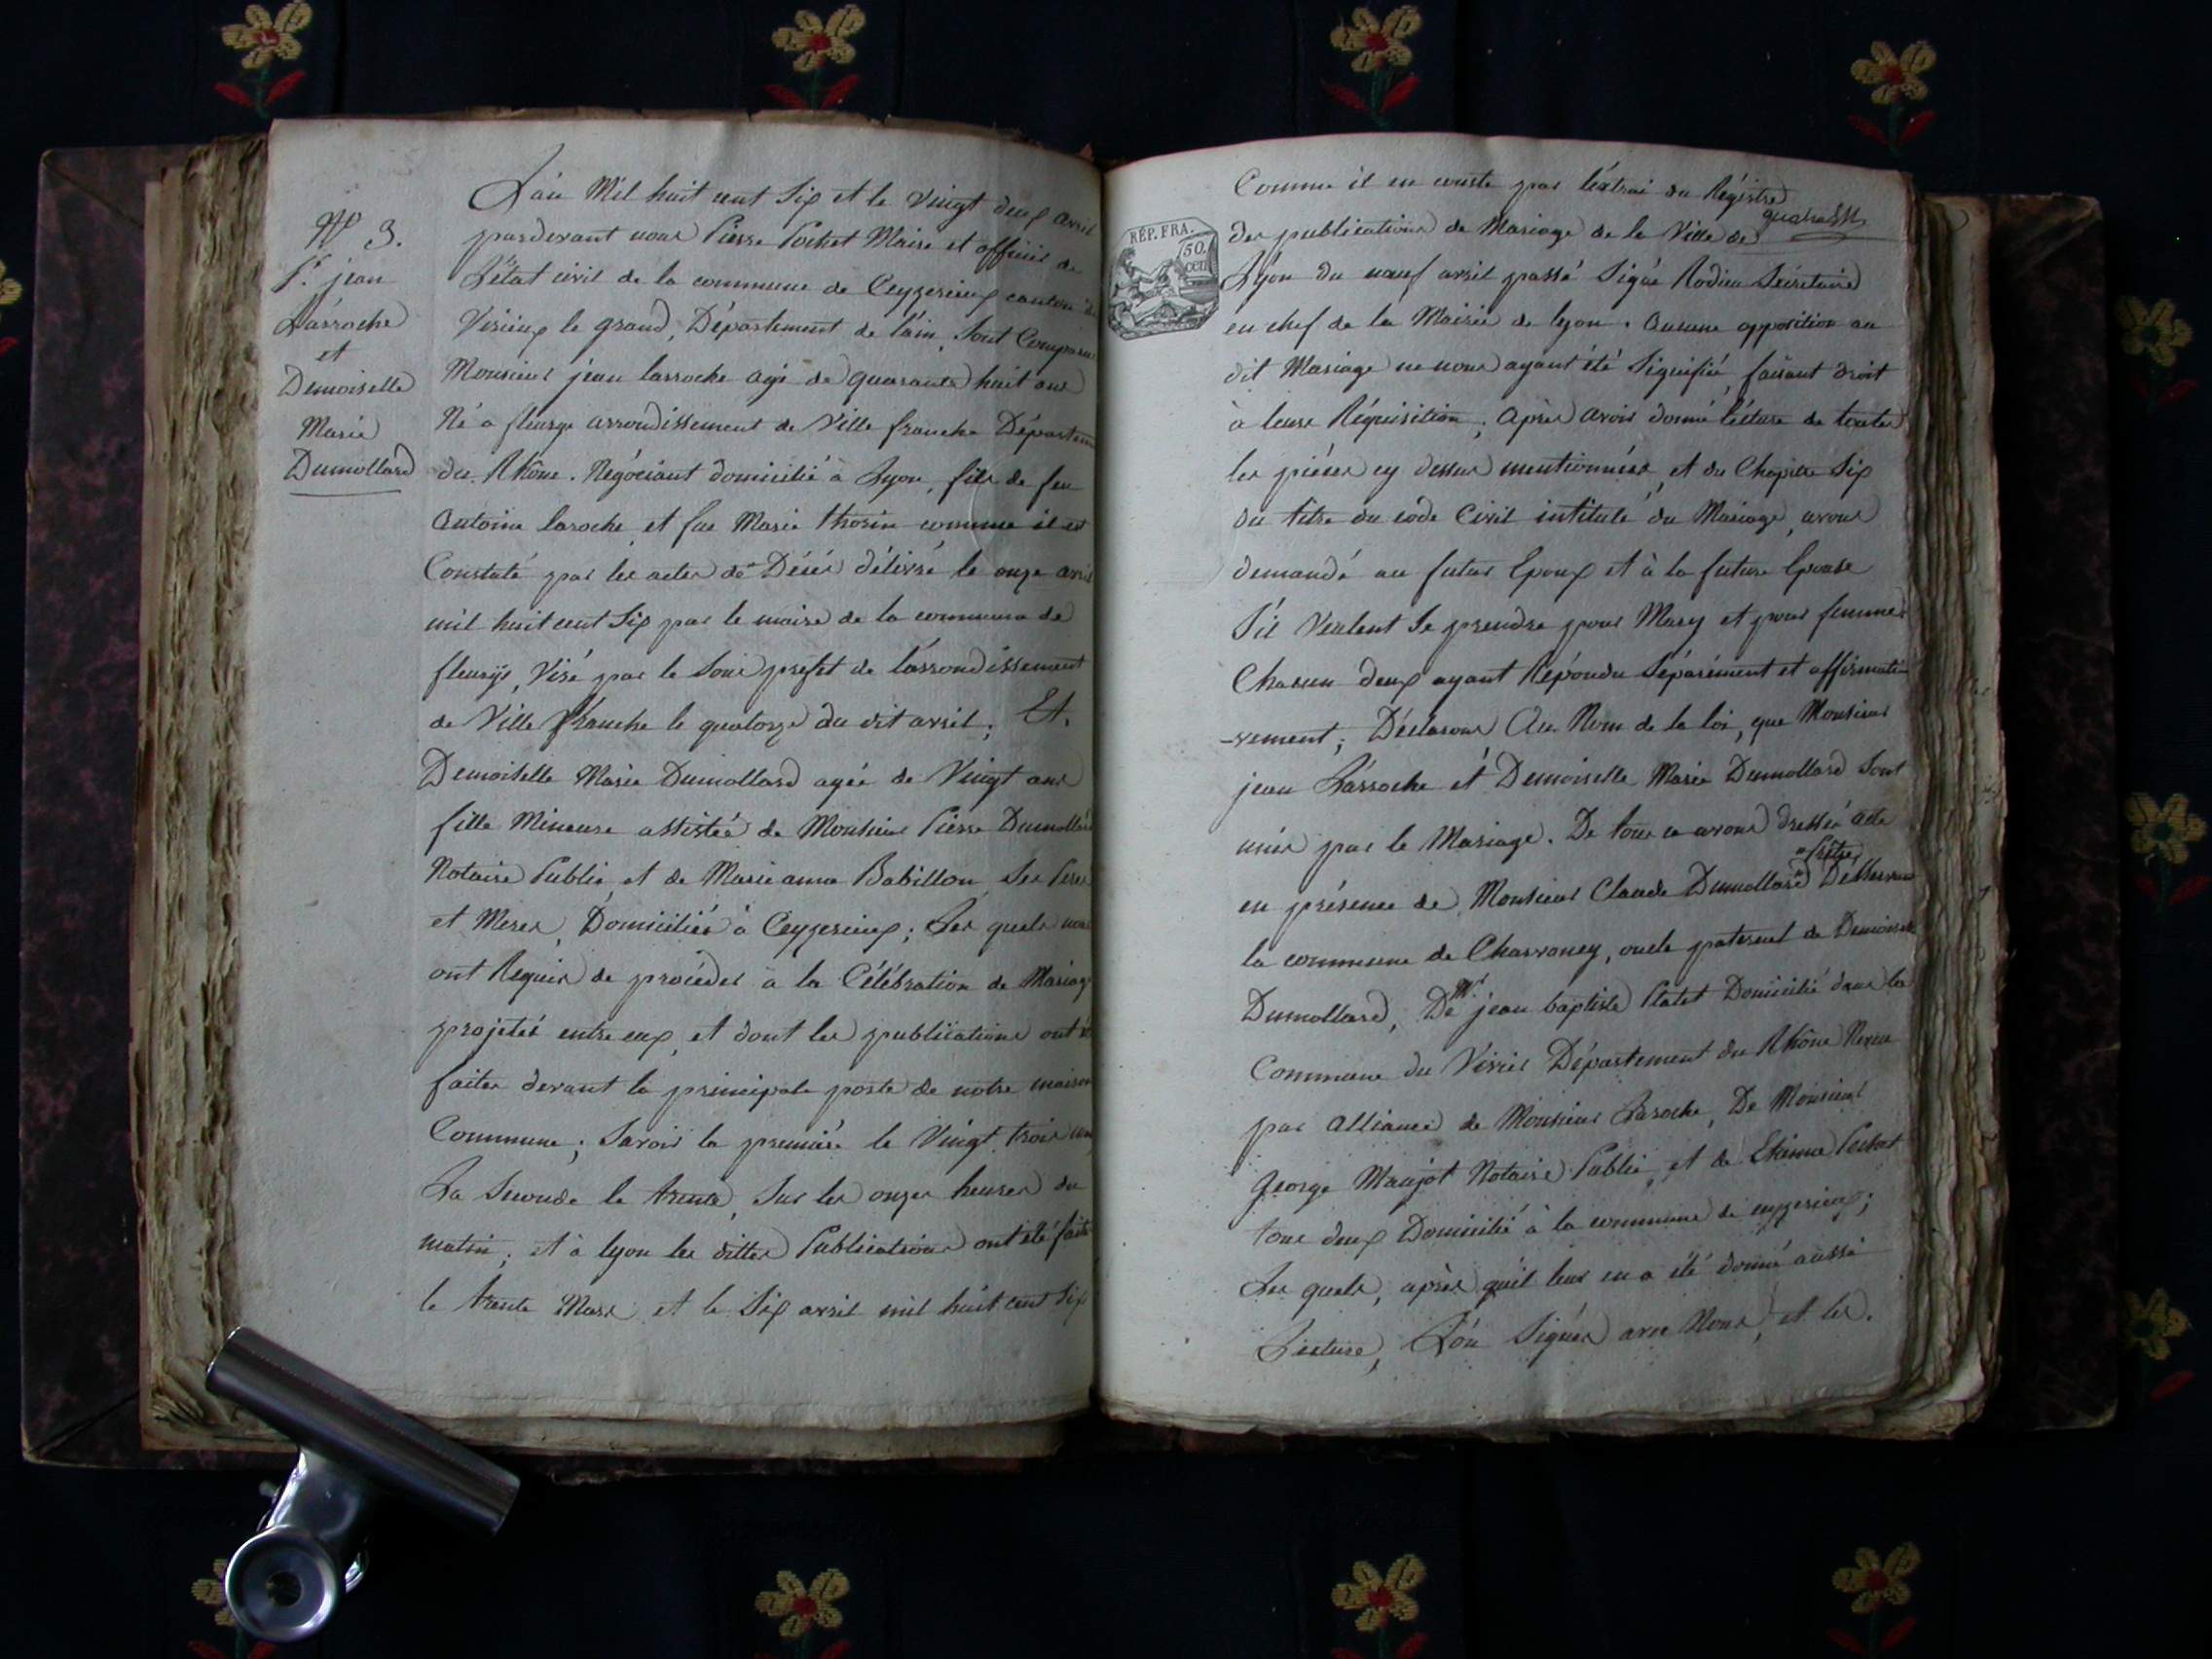 N.° 3.
S.r jean
Larroche
et
Demoiselle
Marie
Dumollard
L'an Mil huit cent Six et le Vingt deux avril
pardevant nous Pierre Pochet Maire et officier de
L'état civil de la commune de Ceyzerieux canton de
Virieux le grand, Département de l'ain, Sont Comparu
Monsieur jean larroche agé de quarante huit ans
Né a fleurye arrondissement de Ville franche Départem
du Rhône. Négociant domicilié à Lyon, fils de feu
Antoine laroche, et fue Marie thorin comme il est
Constaté par les actes de Décés délivré le onze avril
mil huit cent Six par le maire de la commune de
fleurye, Visé par le Sous prefet de l'arrondissement
de Ville franche le quatorze du dit avril; Et.
Demoiselle Marie Dumollard agée de Vingt ans
fille Mineure assistée de Monsieur Pierre Dumollard
Notaire Public, et de Marieanne Babillon, Ses Peres
et Meres, Domiciliés à Ceyzerieux; Les quels nous
ont Requis de procéder à la Célébration de Mariage
projetés entre eux, et dont les publications ont été
faites devant la principale porte de notre maison
Commune; Savoir la premiere le Vingt trois
La Seconde le trente, Sur les onzes heures du
matin; et à lyon les dittes Publications ont été faite
le trente Mars et le Six avril mil huit cent Six
RÉP. FRA.
50.
cen.
Comme il en conste par l'extrai du Régistre
des publications de Mariage de la Ville de
Lyon du neuf avril passé Signé Rodieu Sécrétaire
en chef de la Mairie de lyon. Aucune opposition au
dit Mariage ne nous ayant été Signifié, faisant droit
à leurs Réquisition; Après avoir donné lecture de toutes
les pièces cy dessus mentionnées, et du Chapitre Six
du titre du code Civil intitulé du Mariage, avons
demandé au futur Epoux et à la future Epouse
S'il Veulent Se prendre pour Mary et pour femme
Chacun deux ayant Répondu Séparément et affirmati-
-vement; Déclarons Au Nom de la loi, que Monsieur
jean Larroche et Demoiselle Marie Dumollard Sont
unis par le Mariage. De tous ce avons dressé acte
prêtre
en présence de Monsieur Claude Dumollard Desservant
la commune de Charvoney, oncle paternel de Demoiselle
Dumollard, De M.r jean baptiste Platet Domicilié dans la
Commune du Virier Département du Rhône Neveu
par Alliance de Monsieur Laroche, De Monsieur
George Maujot Notaire Public, et de Etienne Pochet
tous deux Domicilié à la commune de ceyzerieux;
Les quels, après qu'il leur en a été donné aussi
Lecture, L'on Signés avec Nous, et les.